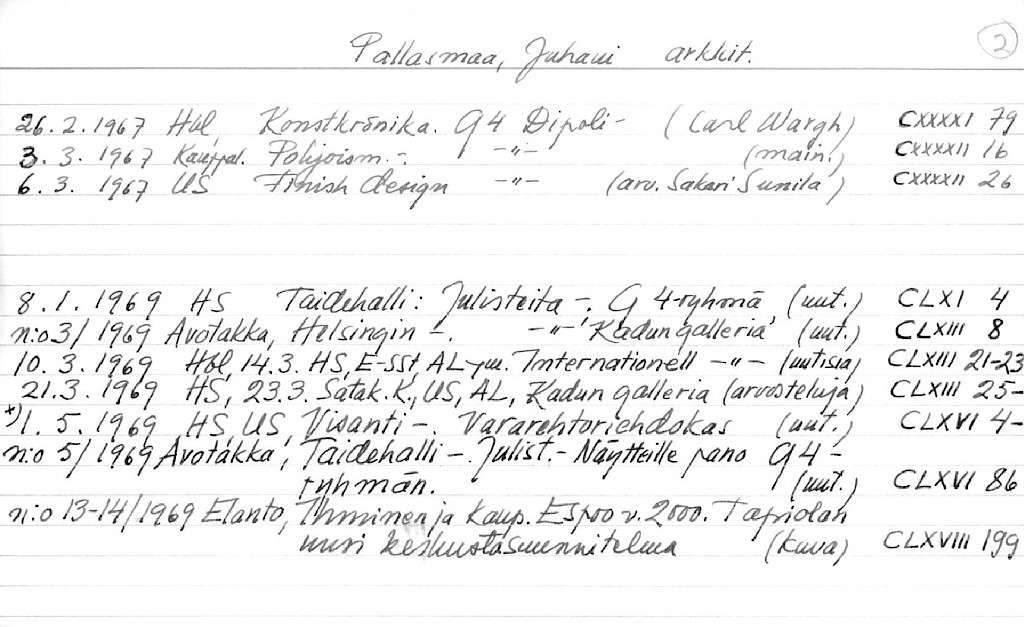 2
Pallasmaa, Juhani arkkit.
26.2.1967 Hbl, Konstkrönika. G4 Dipoli- (Carl Wargh) CXXXXI 79
3.3.1967 Kauppal. Pohjoism.-. -"- (main.) CXXXXII 16
6.3.1967 US Finish design -"- (arv. Sakari Sunila) CXXXXII 26
8.1.1969 HS Taidehalli: Julisteita -. G4-ryhmä, (uut.) CLXI 4
n:o 3/1969 Avotakka, Helsingin -. -"- 'Kadun galleria' (uut.) CLXIII 8
10.3.1969 Hbl, 14.3. HS, E-SSt, AL-ym. Internationell -"- (uutisia) CLXIII 21-23
21.3.1969 HS, 23.3. Satak.K., US, AL, Kadun galleria (arvosteluja) CLXIII 25-
*)1.5.1969 HS, US, Visanti -. Vararehtoriehdokas (uut.) CLXVI 4-
n:o 5/1969 Avotakka, Taidehalli -. Julist.- Näytteille pano G4-
ryhmän. (uut.) CLXVI 86
n:o 13-14/1969 Elanto, Ihminen ja kaup. Espoo v. 2000. Tapiolan
uusi keskustasuunnitelma (kuva) CLXVIII 199